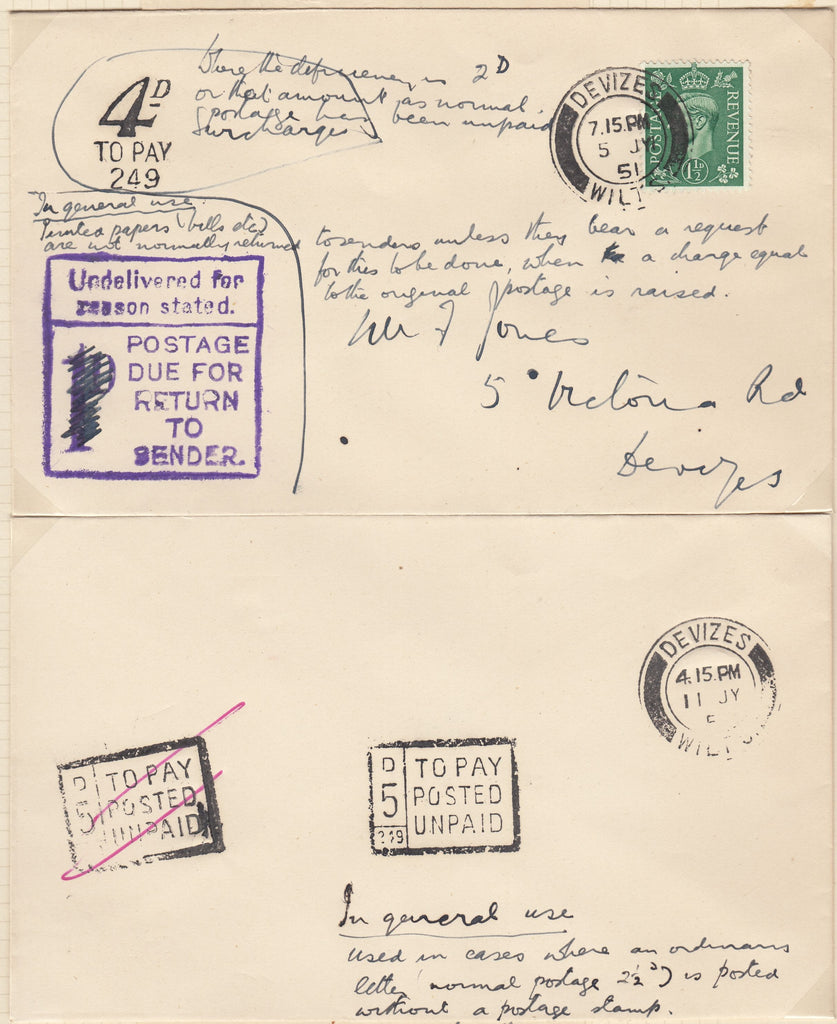 Where the deficiency is 2D
or that amount as normal
postage has been unpaid
Surcharges
4D
TO PAY
249
DEVIZES
7.15.PM
5 JY
51
WILTS
POSTAGE
REVENUE
1½D
In general use.
Printed papers (bills etc)
are not normally returned to senders unless they bear a request
for this to be done, when a charge equal
to the original postage is raised.
Undelivered for
reason stated.
POSTAGE
DUE FOR
RETURN
TO
SENDER.
Mr J Jones
5 Victoria Rd
Devizes
DEVIZES
4.15.PM
11 JY
5
WILTS
D
5
TO PAY
POSTED
UNPAID
D
5
249
TO PAY
POSTED
UNPAID
In general use
used in cases where an ordinary
letter (normal postage 2½D) is posted
without a postage stamp.